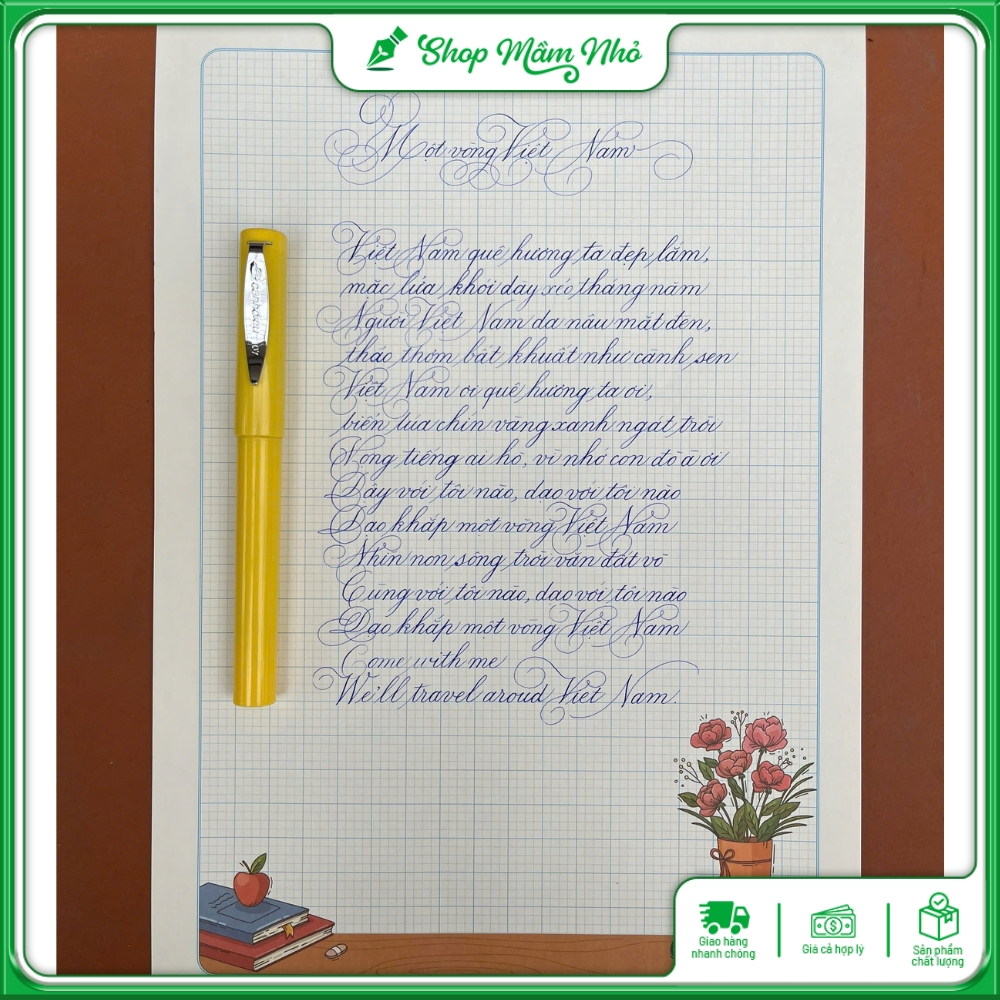 Shop Mầm Nhỏ
Một vòng Việt Nam
Việt Nam quê hương ta đẹp lắm,
mặc lửa khói dày xéo tháng năm
Người Việt Nam da nâu mắt đen,
thảo thơm bất khuất như cành sen
Việt Nam ơi quê hương ta ơi,
biển lúa chín vàng xanh ngát trời
Vọng tiếng ai hò, vì nhớ con đò à ơi
Dậy với tôi nào, dạo với tôi nào
Dạo khắp một vòng Việt Nam
Nhìn non sông trời vẫn đất võ
Cùng với tôi nào, dạo với tôi nào
Dạo khắp một vòng Việt Nam
Come with me
We'll travel aroud Việt Nam.
Giao hàng
nhanh chóng
Giá cả hợp lý
Sản phẩm
chất lượng